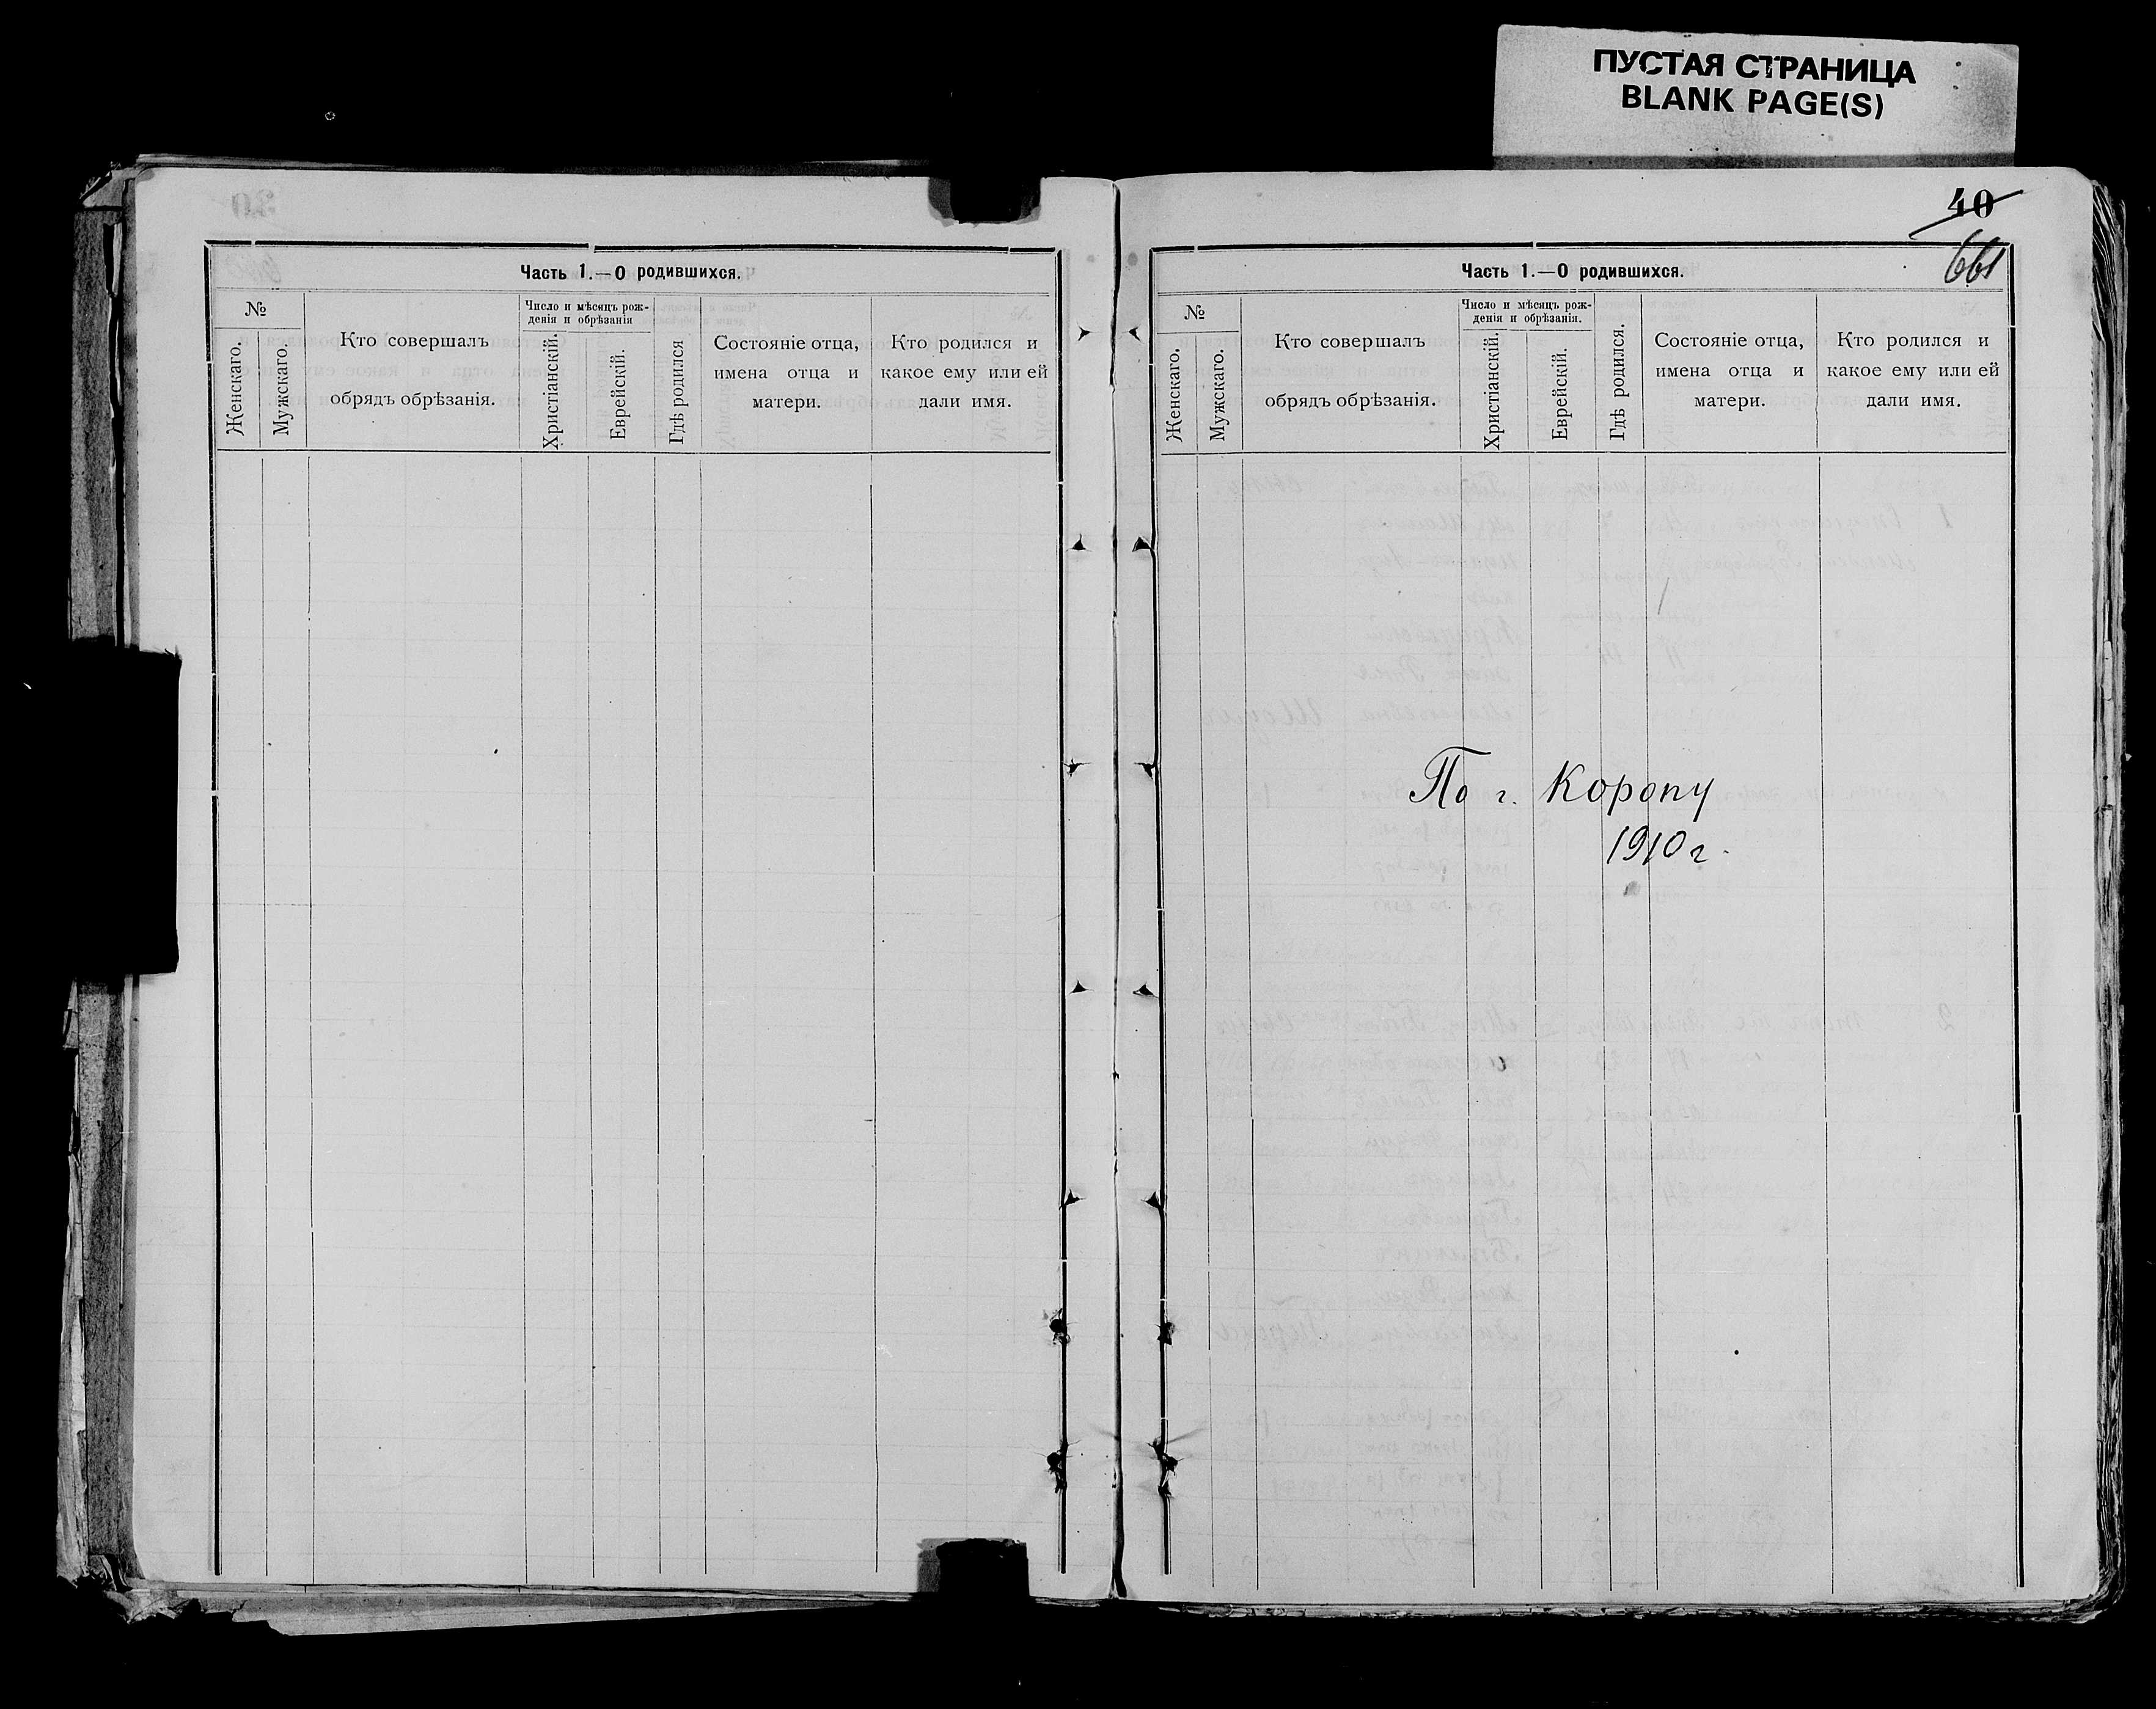 ПУСТАЯ СТРАНИЦА
BLANK PAGE(S)
Часть 1.—О родившихся.
№
Женскаго.
Мужскаго.
Кто совершалъ
обрядъ обрѣзанія.
Число и мѣсяцъ рож-
денія и обрѣзанія
Христіанскій.
Еврейскій.
Гдѣ родился
Состояніе отца,
имена отца и
матери.
Кто родился и
какое ему или ей
дали имя.
40
661
Часть 1.—О родившихся.
№
Женскаго.
Мужскаго.
Кто совершалъ
обрядъ обрѣзанія.
Число и мѣсяцъ рож-
денія и обрѣзанія.
Христіанскій.
Еврейскій.
Гдѣ родился.
Состояніе отца,
имена отца и
матери.
Кто родился и
какое ему или ей
дали имя.
По г. Коропу
1910 г.